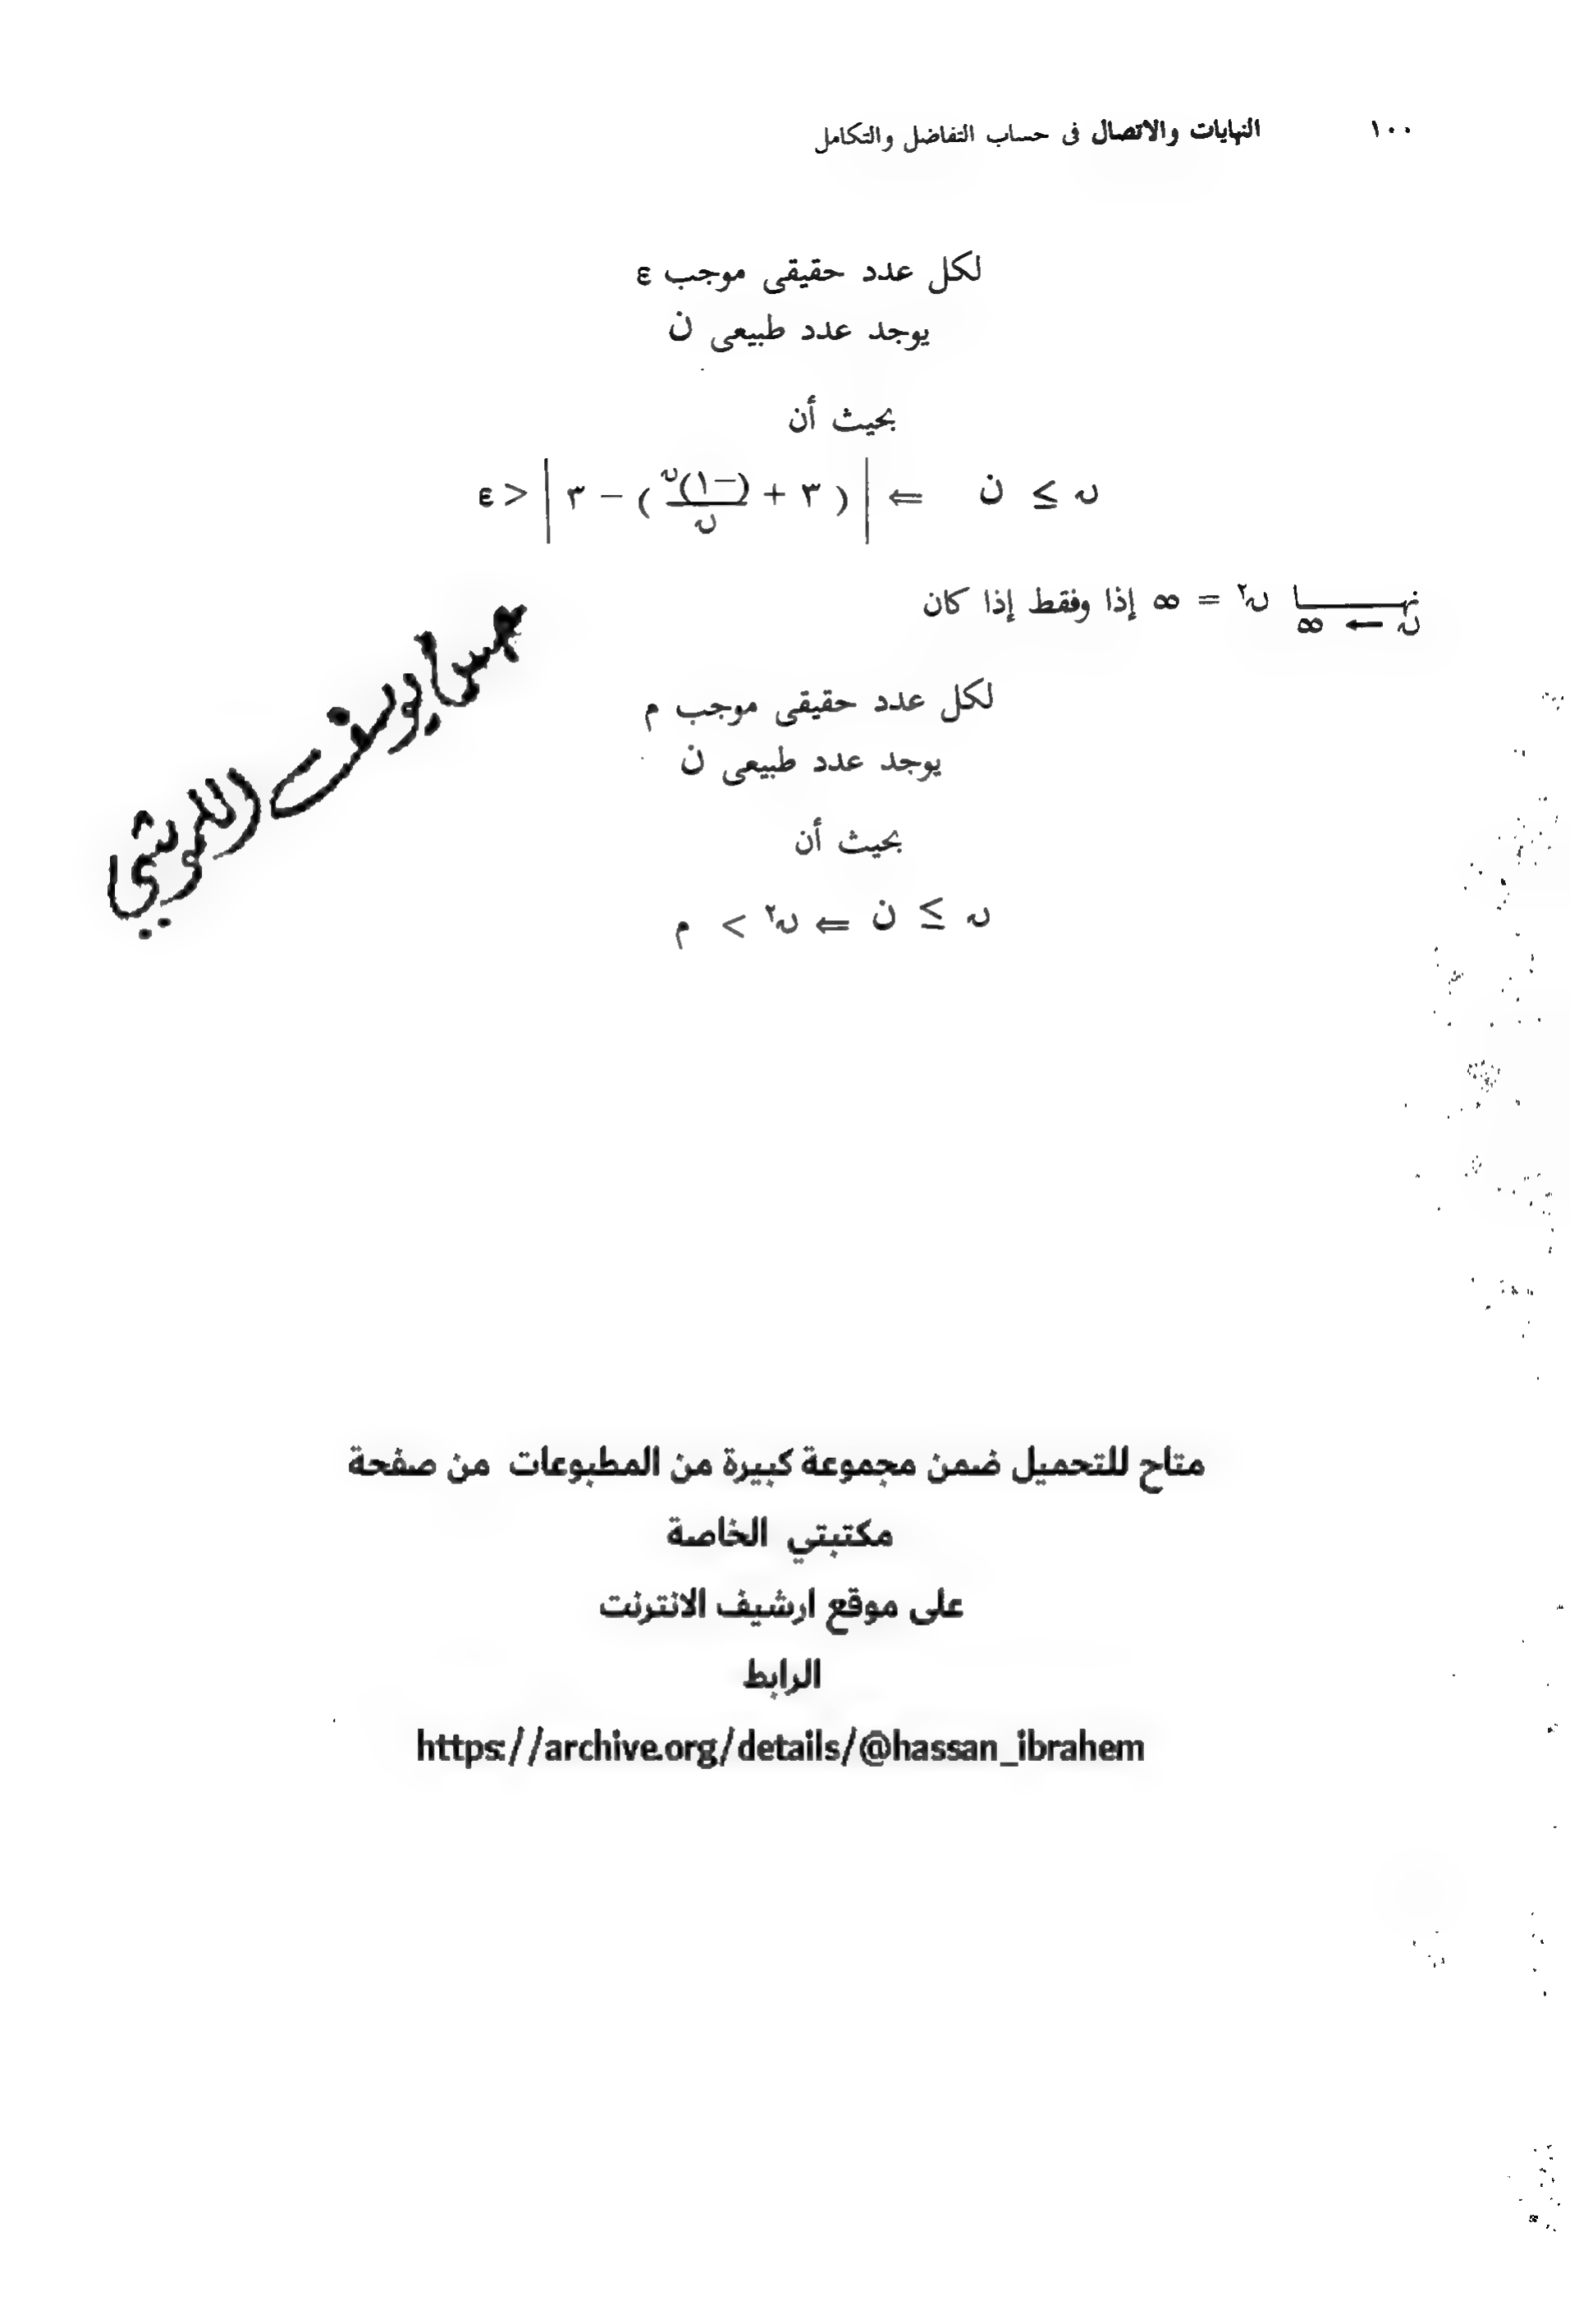 ١٠٠ النهايات والاتصال فى حساب التفاضل والتكامل
لكل عدد حقيقى موجب ε
يوجد عدد طبيعى ن
بحيث أن
ں ≥ ن ⇐ | ( ٣ + (-١)^ں / ں ) - ٣ | < ε
نهـــا ں ← ∞ ں٢ = ∞ إذا وفقط إذا كان
لكل عدد حقيقى موجب م
يوجد عدد طبيعى ن
بحيث أن
ں ≥ ن ⇐ ں٢ > م
متاح للتحميل ضمن مجموعة كبيرة من المطبوعات من صفحة
مكتبتي الخاصة
على موقع ارشيف الانترنت
الرابط
https://archive.org/details/@hassan_ibrahem